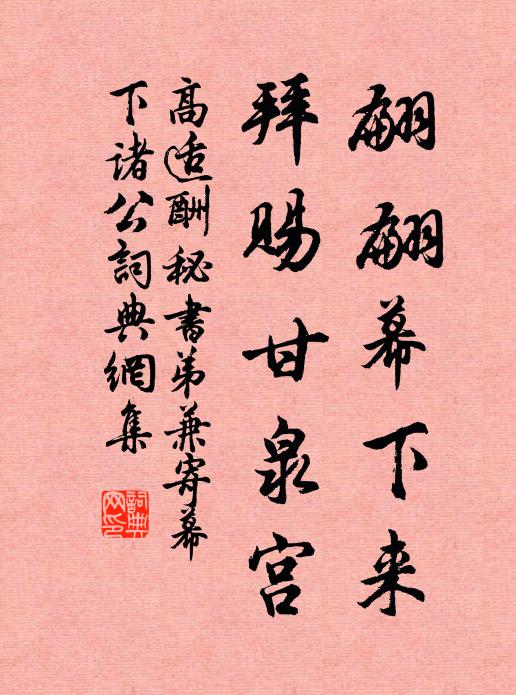 翩翩幕下来
拜赐甘泉宫
高适酬秘書弟兼寄幕
下诸公詞典網集
詞典网印